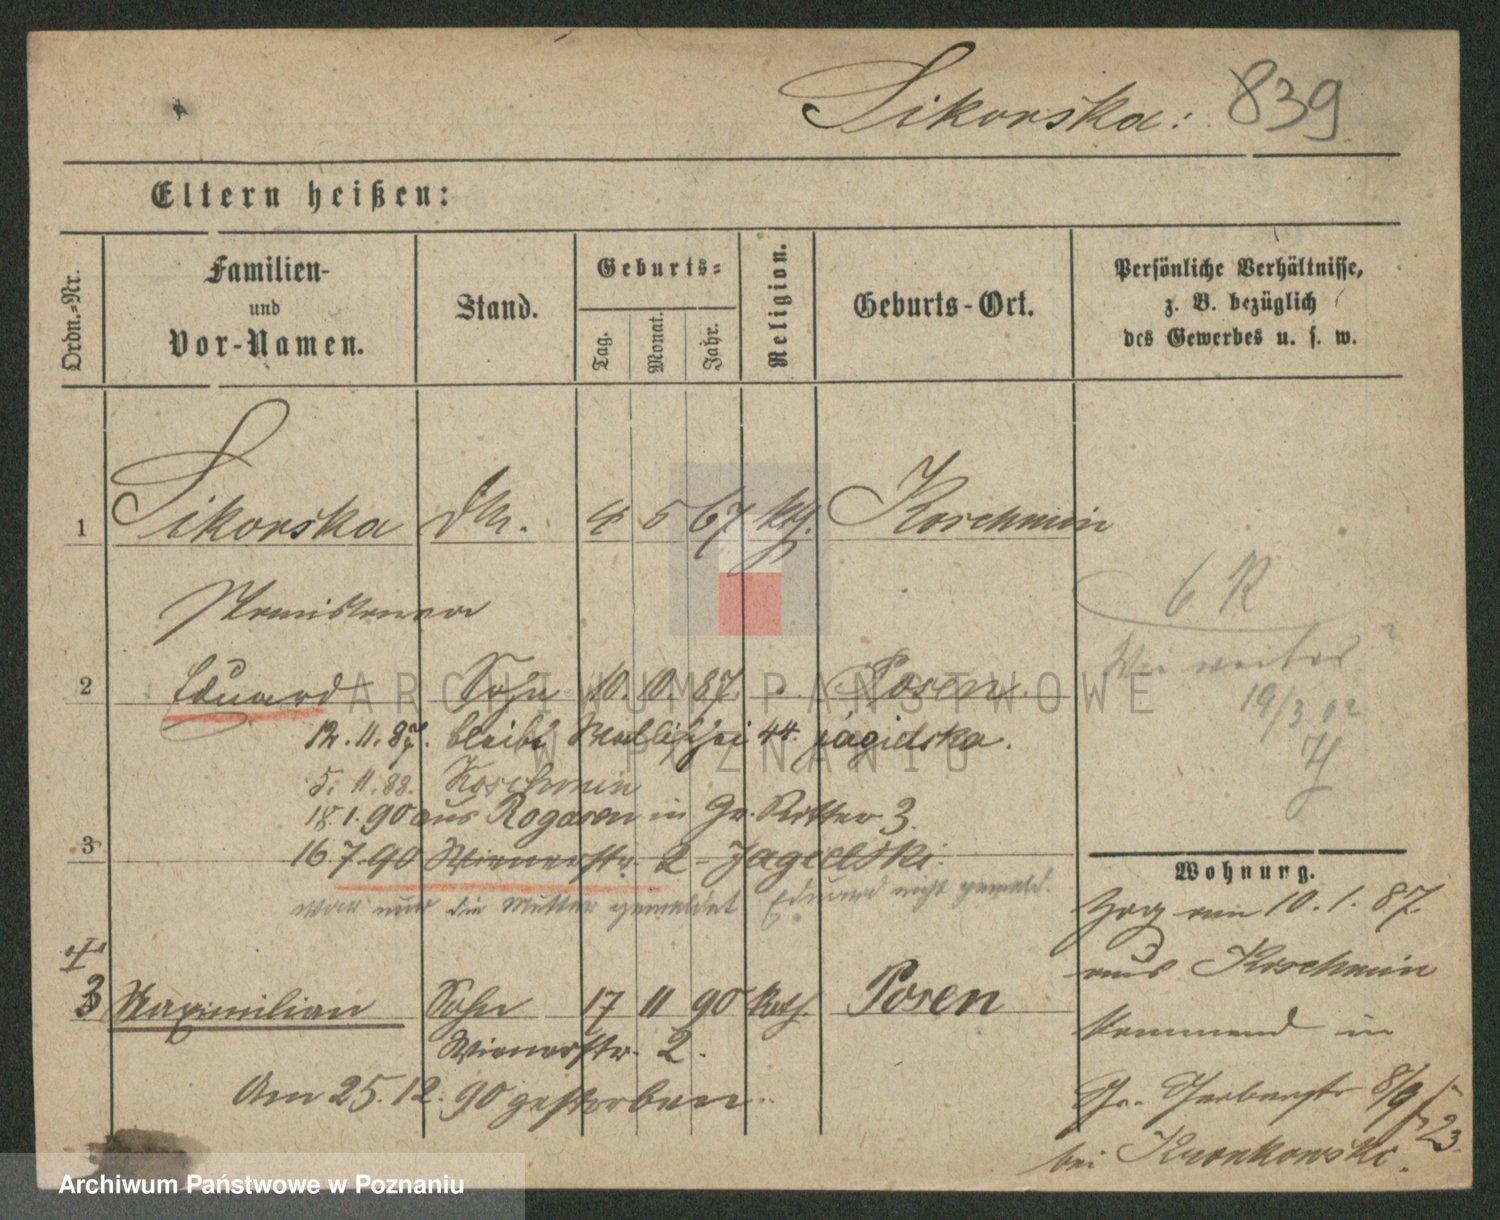 Sikorska: 839
Eltern heißen:
Ordn.-Nr.
Familien-
und
Vor-Namen.
Stand.
Geburts-
Tag.
Monat.
Jahr.
Religion.
Geburts-Ort.
Persönliche Verhältnisse,
z. B. bezüglich
des Gewerbes u. s. w.
1 Sikorska 4 5 67 kth. Koschmin
6 R
2 Eduard Sohn 10. 10. 87. Posen.
Wie weiter?
19/3 02
12. 11. 87. bleibt Wallischei 44. jagielska.
5. 11. 88. Koschmin
18. 1. 90 aus Rogasen in Gr. Ritter 3.
3 16. 7. 90 Wienerstr. 2 - Jagielski.
war nur die Mutter gemeldet Eduard nicht gemeld.
3 Maximilian Sohn 17 11 90 Kath. Posen
Wienerstr. 2.
Am 25. 12. 90 gestorben
Wohnung.
Zog am 10. 1. 87.
aus Koschmin
kommend in
Gr. Gerberstr 8/9
bei Kronkowski.
23.
ARCHIWUM PAŃSTWOWE
W POZNANIU
Archiwum Państwowe w Poznaniu